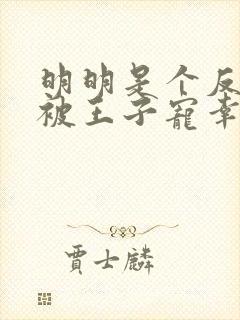 明明是个反
被王子宠幸
賈士麟